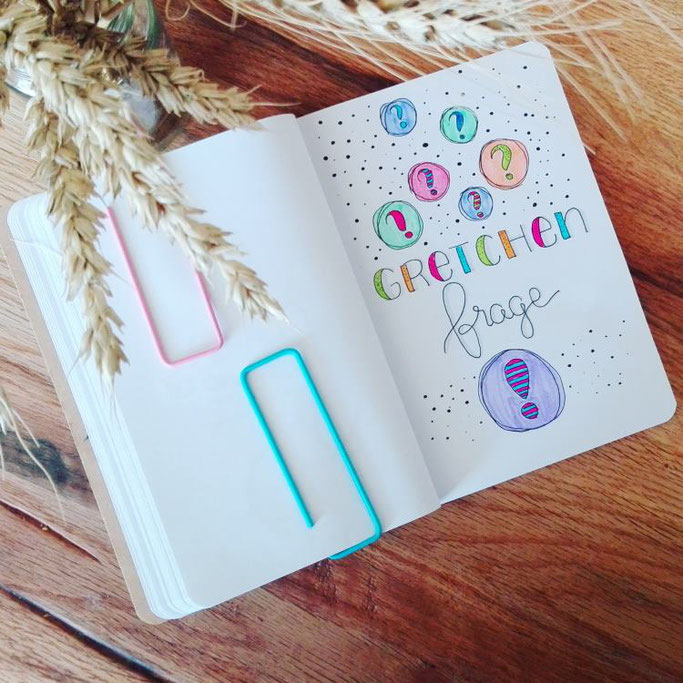 ? ?
? ?
? ?
?
GRETCHEN
frage
!